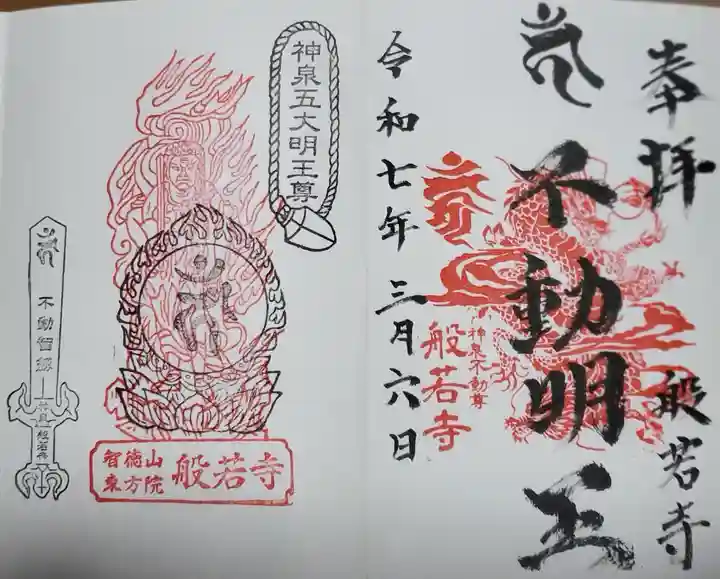 奉拝
不動明王
般若寺
令和七年三月六日
神泉不動尊
般若寺
神泉五大明王尊
智徳山
東方院
般若寺
不動智劔
般若寺